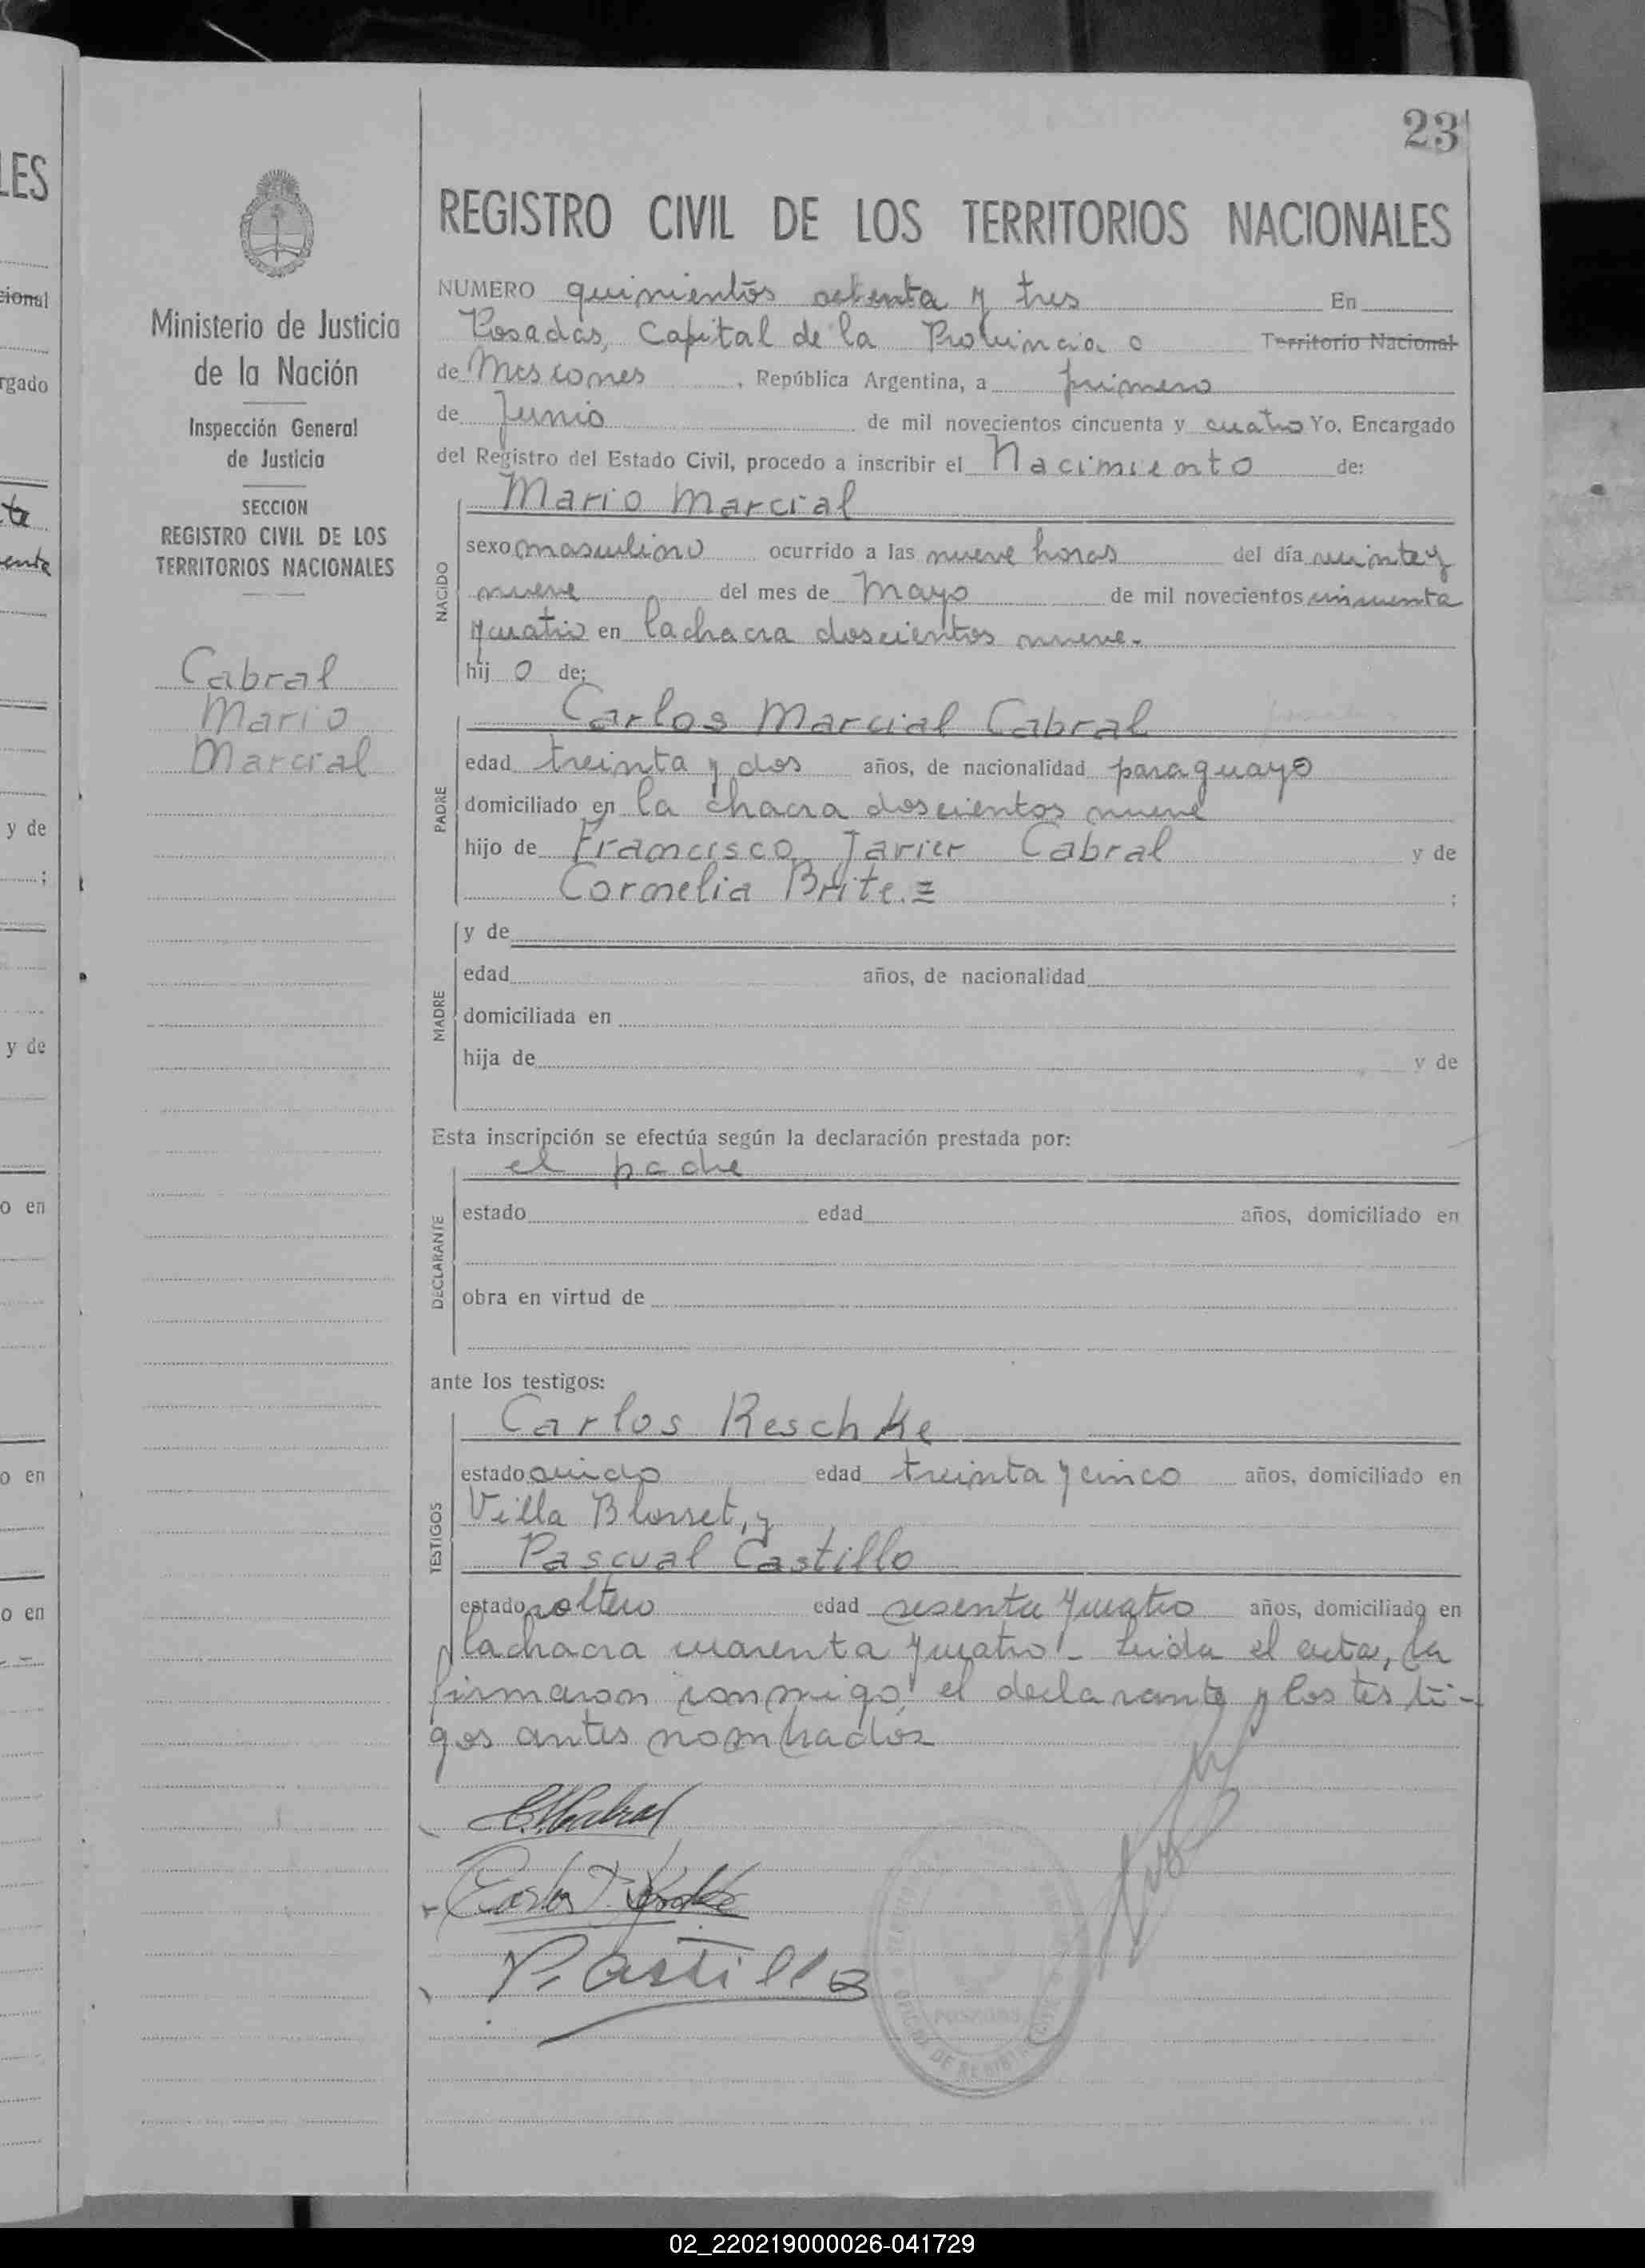 23
LES
cional
rgado
ta
enta
y de
y de
o en
o en
o en
Ministerio de Justicia
de la Nación
Inspección General
de Justicia
SECCION
REGISTRO CIVIL DE LOS
TERRITORIOS NACIONALES
Cabral
Mario
Marcial
REGISTRO CIVIL DE LOS TERRITORIOS NACIONALES
NUMERO quinientos setenta y tres En
Posadas, Capital de la Provincia o Territorio Nacional
de Misiones, República Argentina, a primero
de Junio de mil novecientos cincuenta y cuatro Yo, Encargado
del Registro del Estado Civil, procedo a inscribir el Nacimiento de:
Mario Marcial
NACIDO
sexo masculino ocurrido a las nueve horas del día veinte y
nueve del mes de Mayo de mil novecientos cincuenta
y cuatro en la chacra doscientos nueve.-
hij o de:
Carlos Marcial Cabral
PADRE
edad treinta y dos años, de nacionalidad paraguayo
domiciliado en la chacra doscientos nueve
hijo de Francisco Javier Cabral y de
Cornelia Britez ;
MADRE
y de
edad años, de nacionalidad
domiciliada en
hija de y de
Esta inscripción se efectúa según la declaración prestada por:
el padre
DECLARANTE
estado edad años, domiciliado en
obra en virtud de
ante los testigos:
Carlos Reschke
TESTIGOS
estado edad treinta y cinco años, domiciliado en
Villa Blosset, y
Pascual Castillo
estado soltero edad sesenta y cuatro años, domiciliado en
la chacra cuarenta y cuatro - Leida el acta, la
firmaron conmigo el declarante y los testi-
gos antes nombrados
C.M.Cabral
P. Castillo
POSADAS
02_220219000026-041729